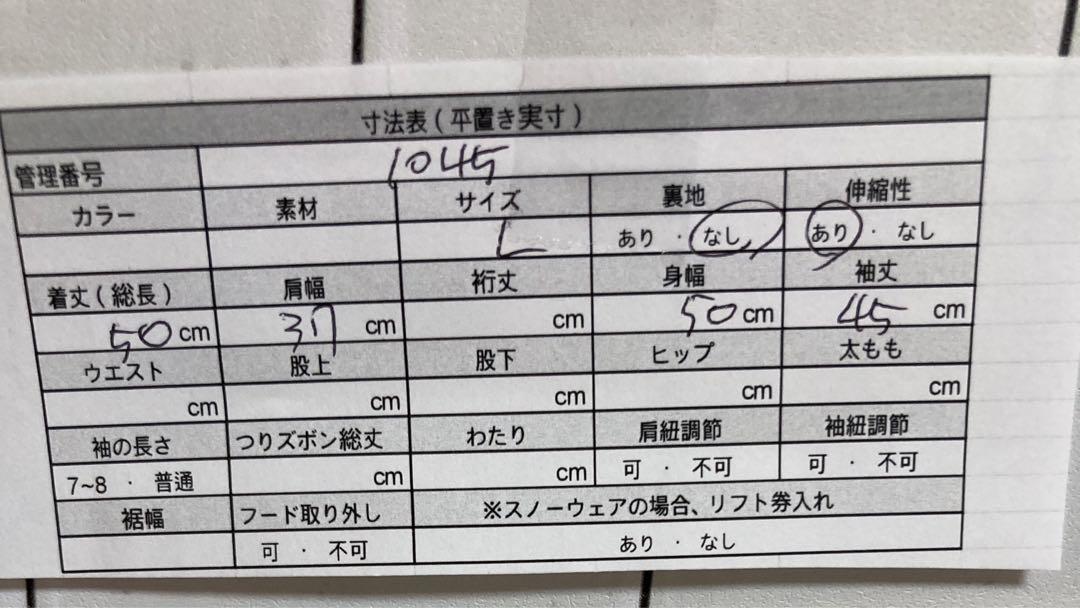 寸法表(平置き実寸)
管理番号 1045
カラー 素材 サイズ 裏地 伸縮性
L あり ・ なし あり ・ なし
着丈(総長) 肩幅 裄丈 身幅 袖丈
50 cm 37 cm cm 50 cm 45 cm
ウエスト 股上 股下 ヒップ 太もも
cm cm cm cm cm
袖の長さ つりズボン総丈 わたり 肩紐調節 袖紐調節
7~8 ・ 普通 cm cm 可 ・ 不可 可 ・ 不可
裾幅 フード取り外し ※スノーウェアの場合、リフト券入れ
可 ・ 不可 あり ・ なし